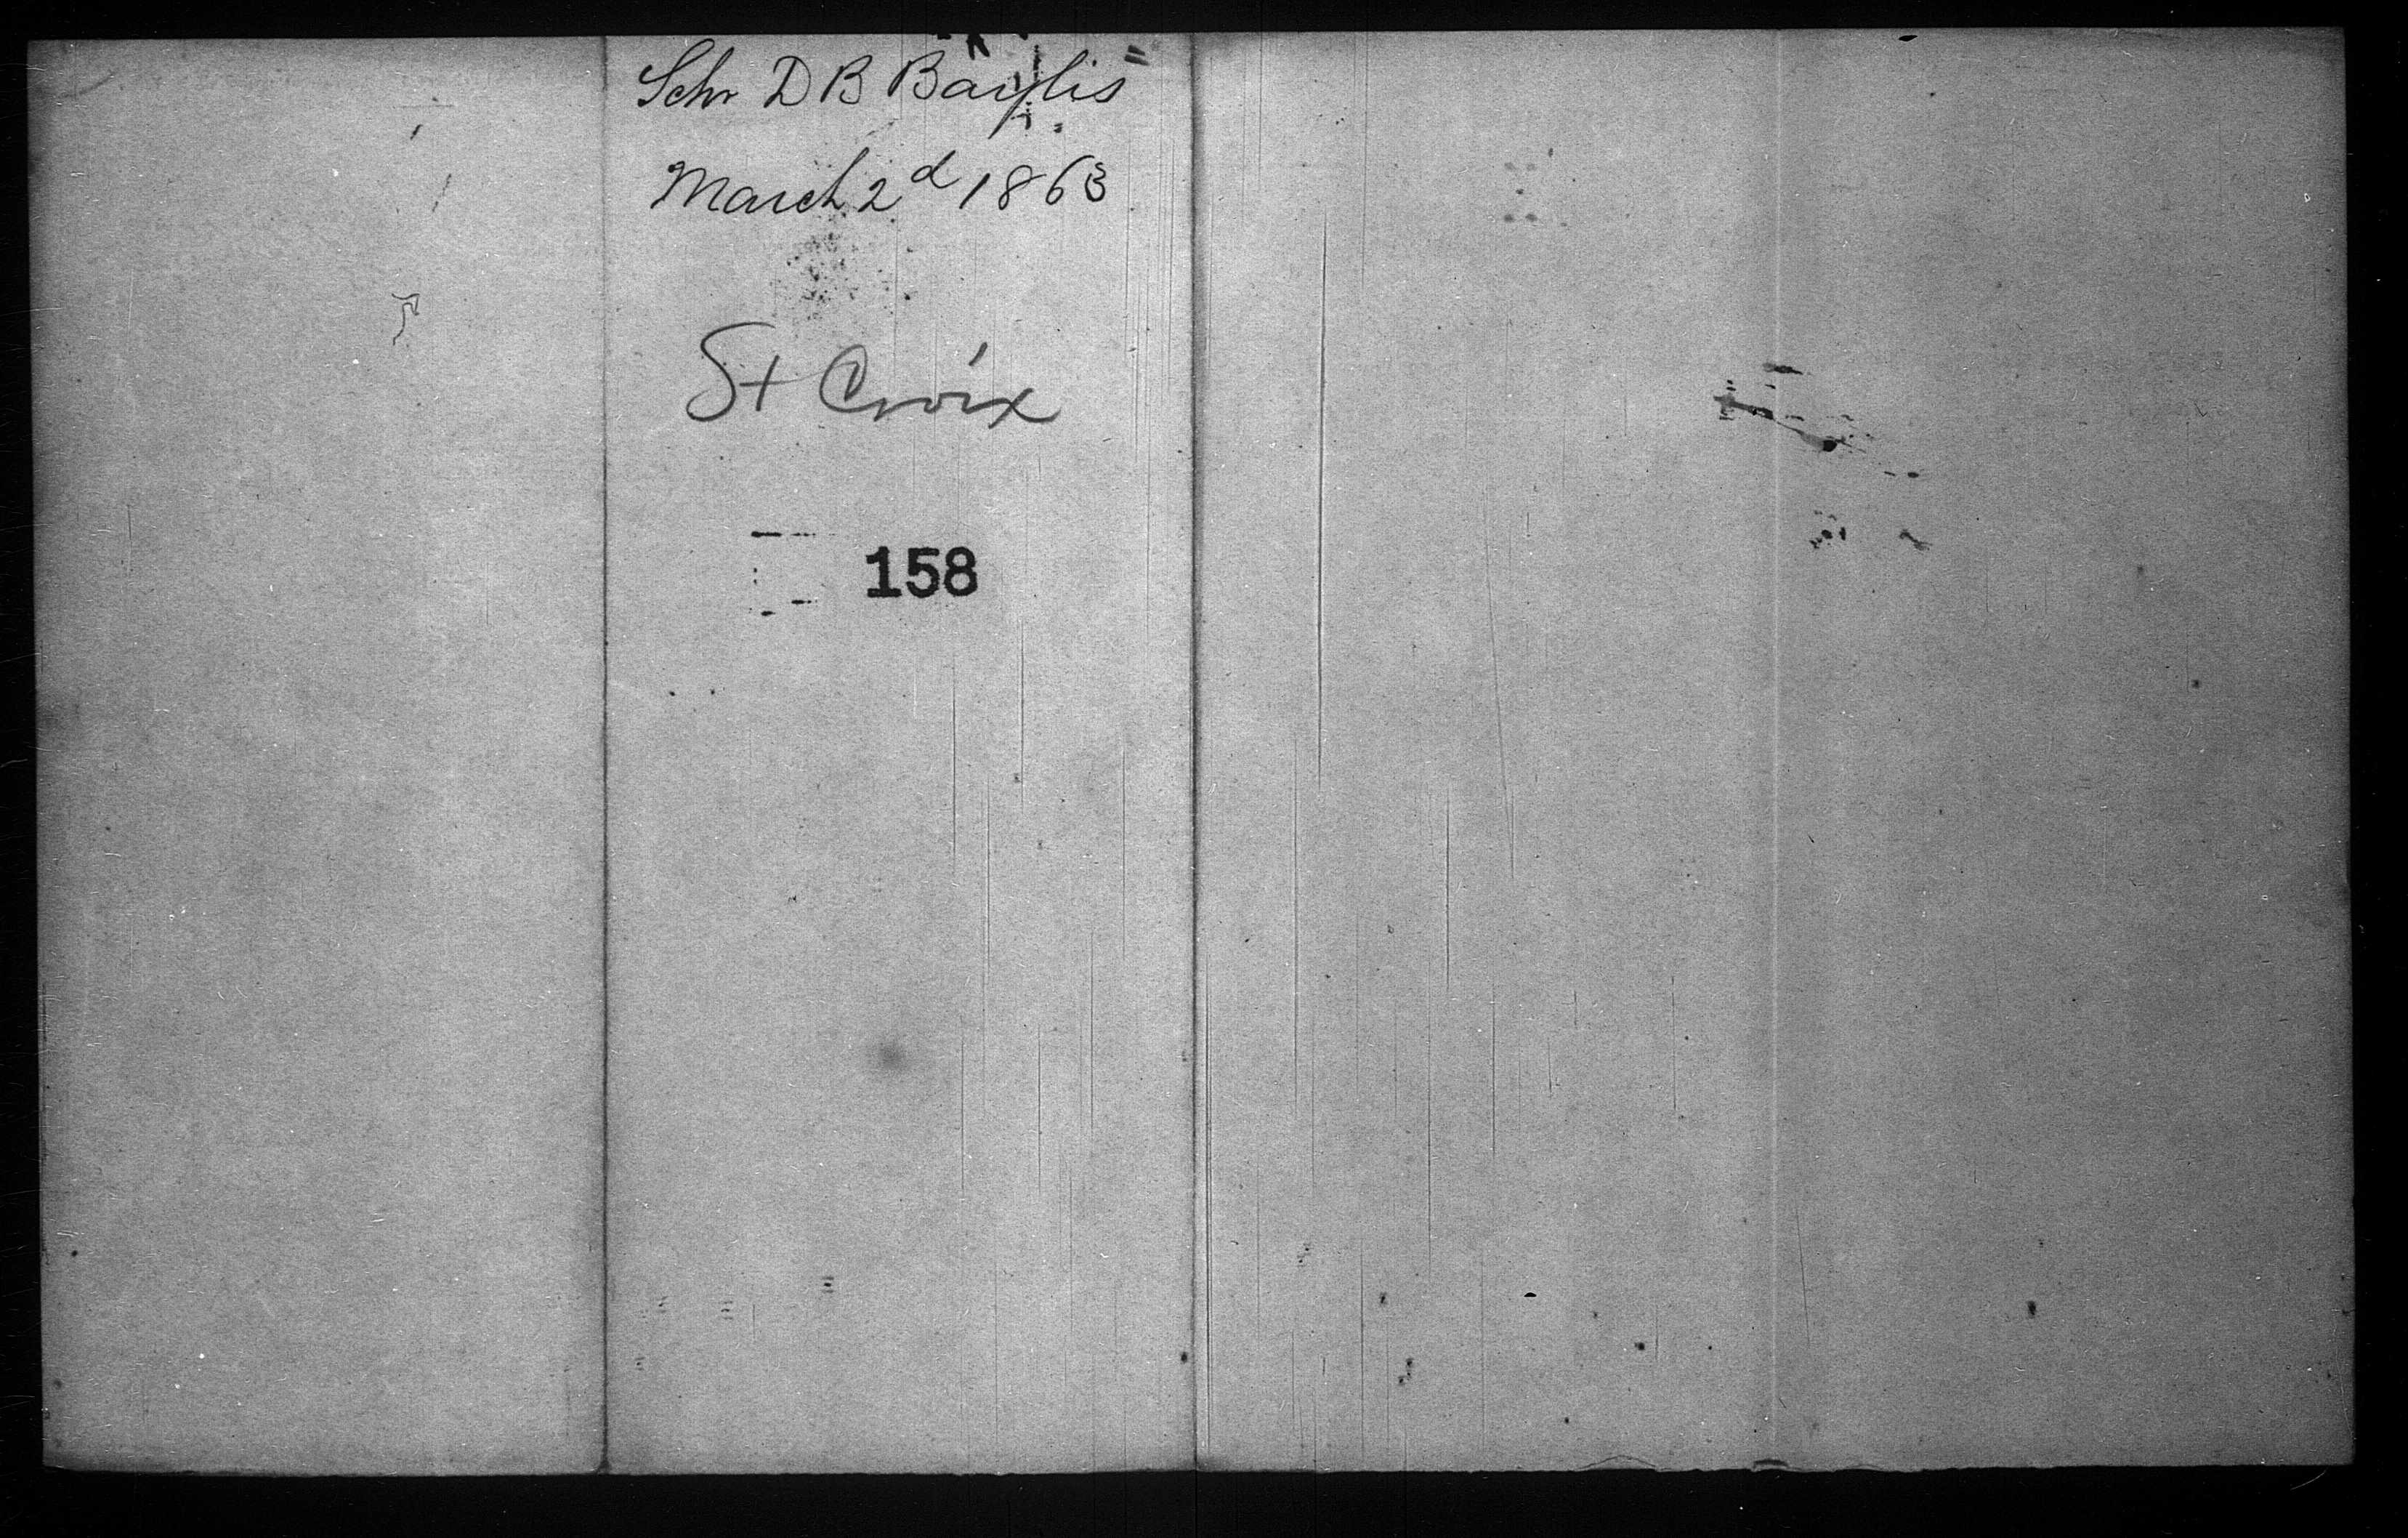 Schr D B Baylis
March 2d 1863
St Croix
158